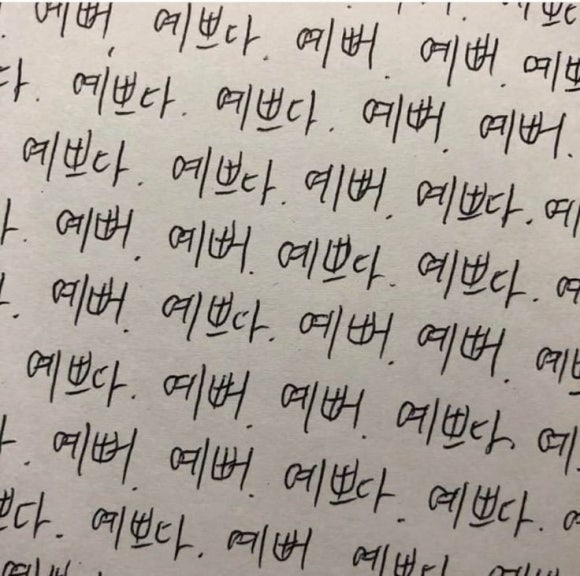 예뻐. 예쁘다. 예뻐. 예뻐. 예쁘
다. 예쁘다. 예쁘다. 예뻐. 예뻐.
예쁘다. 예쁘다. 예뻐. 예쁘다. 예
다. 예뻐. 예뻐. 예쁘다. 예쁘다. 예
다. 예뻐. 예쁘다. 예뻐. 예뻐. 예쁘
예쁘다. 예뻐. 예뻐. 예쁘다. 예
다. 예뻐. 예뻐. 예쁘다. 예쁘다.
쁘다. 예쁘다. 예뻐 예쁘다.